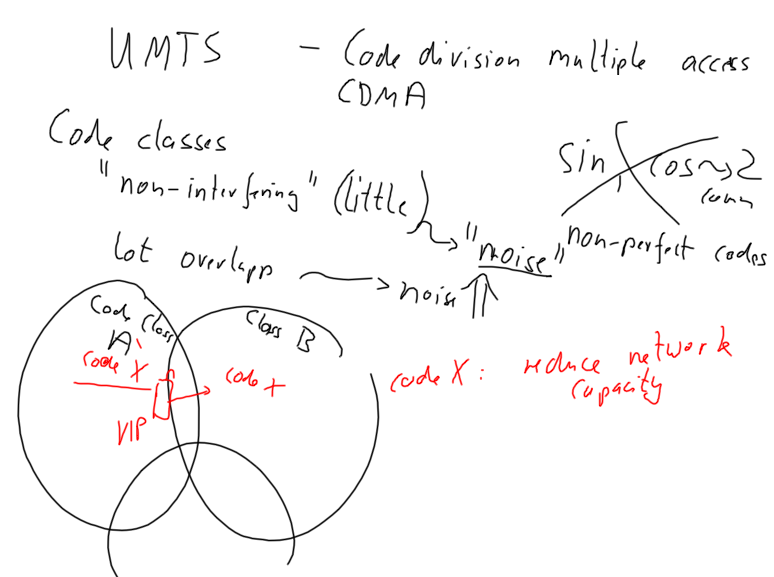 UMTS - Code division multiple access
CDMA
Code classes
"non-interfering" (little)
sin, cos ~> 2
conn
"noise" non-perfect codes
lot overlapp → noise ⇑
Code Class
A
Class B
code X → code X
VIP
code X: reduce network
capacity